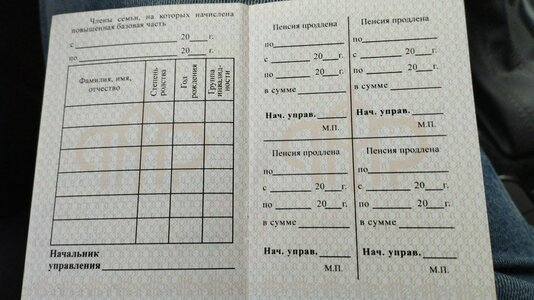 Члены семьи, на которых начислена
повышенная базовая часть
с ____________ 20 ___ г.
по ____________ 20 ___ г.
Фамилия, имя,
отчество
Степень
родства
Год
рождения
Группа
инвалид-
ности
Начальник
управления ____________
Пенсия продлена
по ____________
с ______ 20___г.
по ______ 20___г.
в сумме ____________
Нач. управ. ______
М.П.
Пенсия продлена
по ____________
с ______ 20___г.
по ______ 20___г.
в сумме ____________
Нач. управ. ______
М.П.
Пенсия продлена
по ____________
с ______ 20___г.
по ______ 20___г.
в сумме ____________
Нач. управ. ______
М.П.
Пенсия продлена
по ____________
с ______ 20___г.
по ______ 20___г.
в сумме ____________
Нач. управ. ______
М.П.